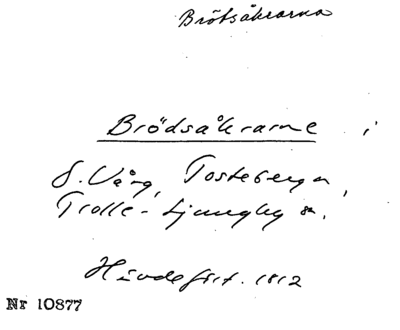 Brötsåkrarna
Brödsåkrarne i
S. Vång, Tosteberga,
Trolle-Ljungby sn.
Hävdefört. 1812
Nr 10877